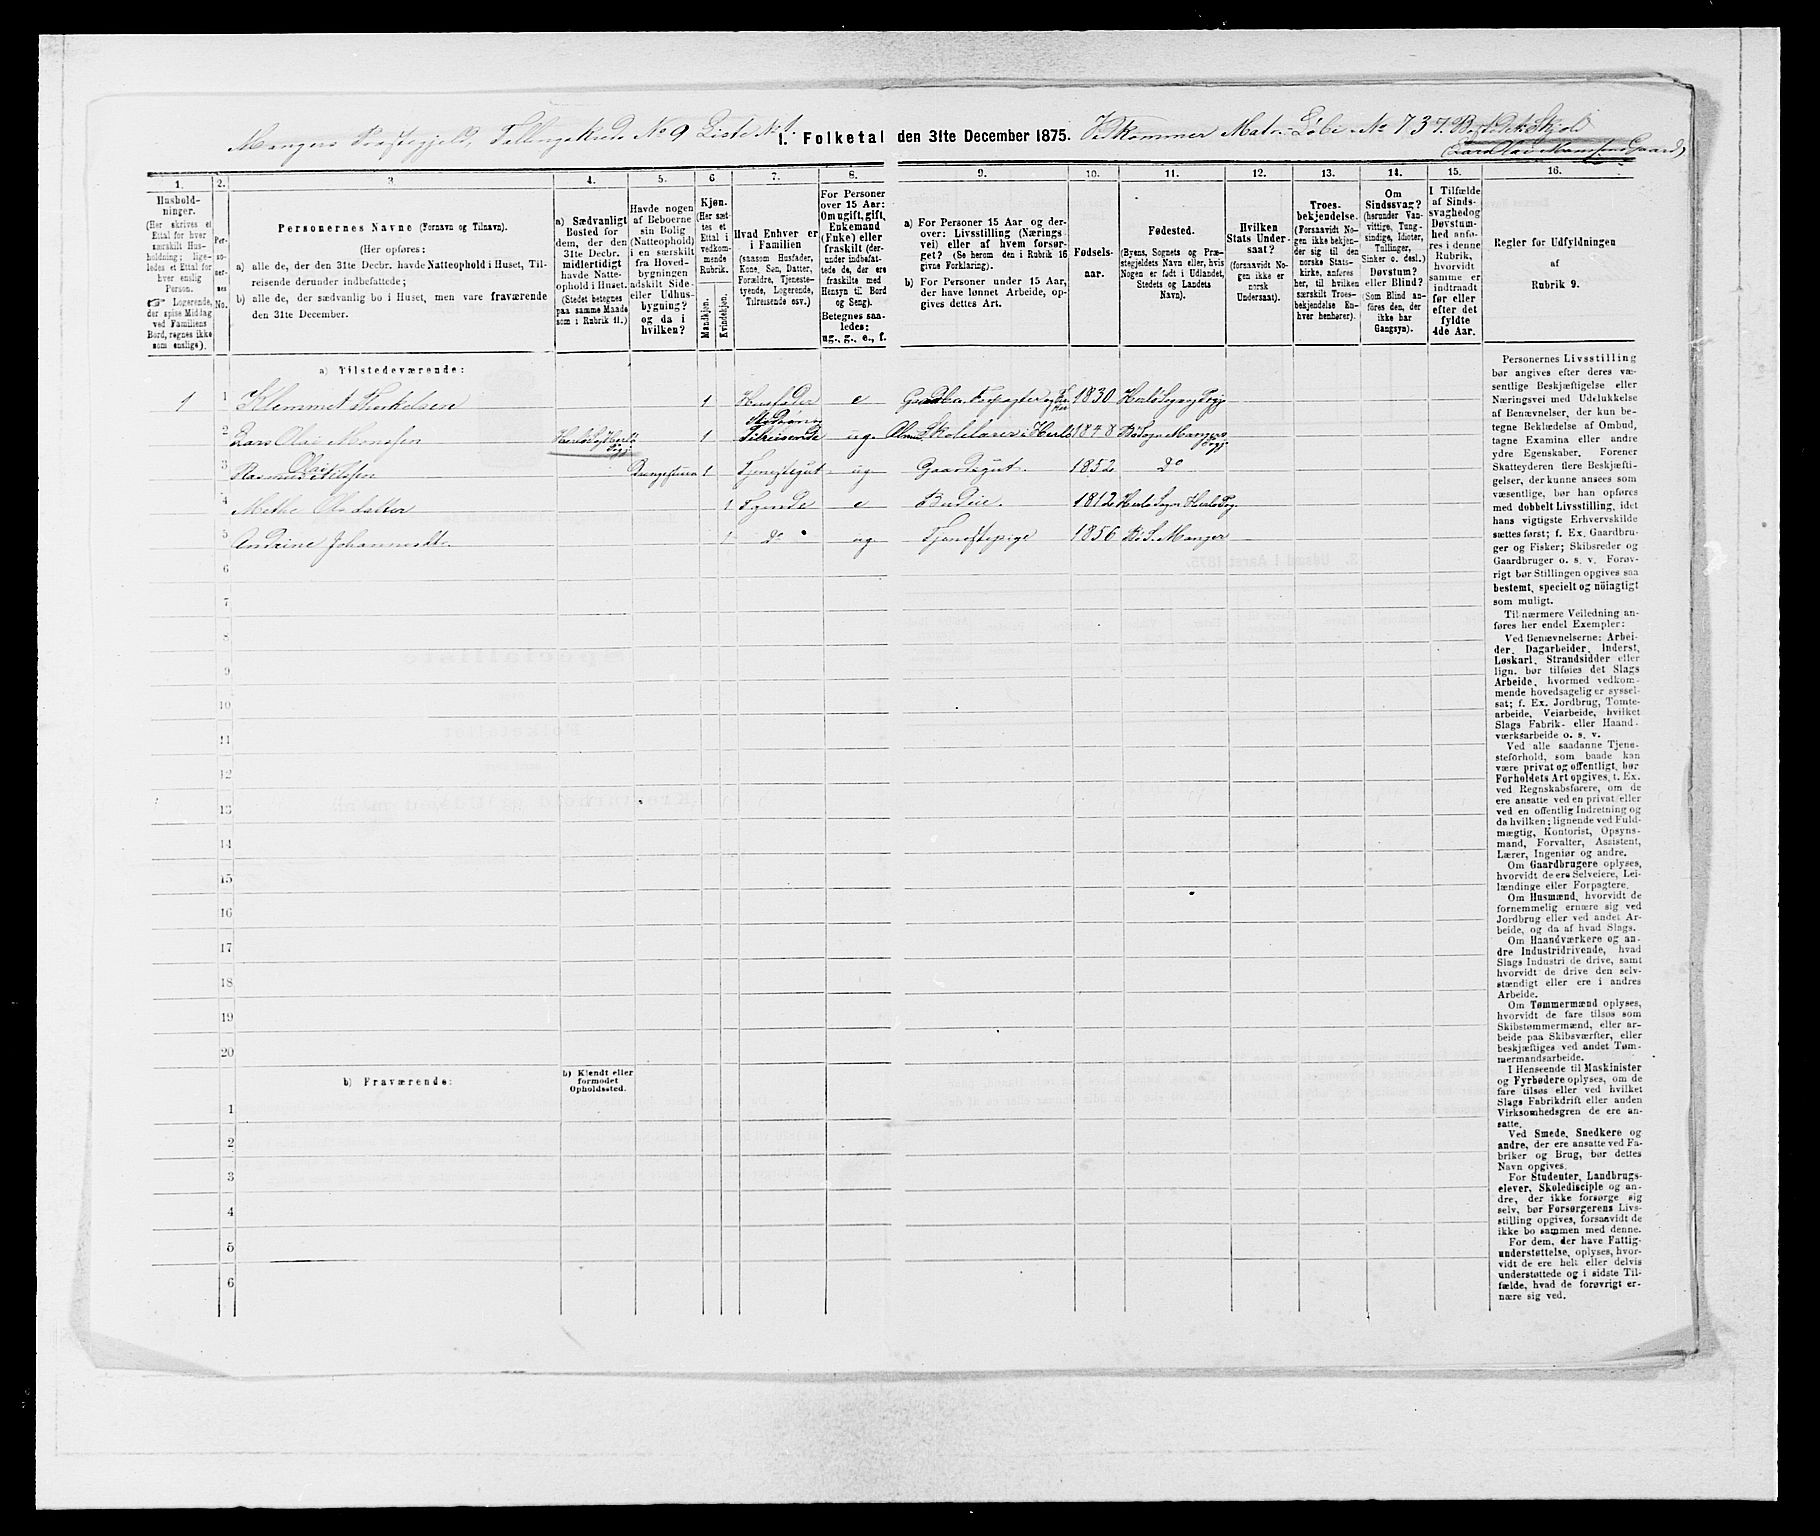 Mangers Præstegjeld, Tællingskreds No 9 Liste No 1.
1. Folketal den 31te December 1875.
Vedkommer Matr. Løbe No 737.
1.
2.
3.
4.
5.
6
7.
8.
9.
10.
11.
12.
13.
14.
15.
16.
Husholdninger.
(Her skrives et
Ettal for hver
særskilt Husholdning;
ligeledes et Ettal for
hver enslig
Person.
☞ Logerende,
der spise Middag
ved Familiens
Bord, regnes ikke
som enslige).
Personernes No.
Personernes Navne (Fornavn og Tilnavn).
(Her opføres:
a) alle de, der den 31te Decbr. havde Natteophold i Huset, Tilreisende derunder indbefattede;
b) alle de, der sædvanlig bo i Huset, men vare fraværende
den 31te December.
a) Sædvanligt
Bosted for
dem, der den
31te Decbr.
midlertidigt
havde Natteophold i Huset.
(Stedet betegnes
paa samme Maade
som i Rubrik 11.)
Havde nogen
af Beboerne
sin Bolig
(Natteophold)
i en særskilt
fra Hovedbygningen
adskilt Side-
eller Udhusbygning?
og da i
hvilken?
Kjøn.
(Her sættes et
Ettal i
vedkommende
Rubrik.
Mandkjøn.
Kvindekjøn.
Hvad Enhver er
i Familien
(saasom Husfader,
Kone, Søn, Datter,
Forældre, Tjenestetyende,
Logerende,
Tilreisende osv.)
For Personer
over 15 Aar:
Om ugift, gift,
Enkemand
(Enke) eller
fraskilt (derunder indbefattede de, der ere
fraskilte med
Hensyn til Bord
og Seng).
Betegnes saaledes:
ug., g., e., f.
a) For Personer 15 Aar og derover: Livsstilling (Næringsvei) eller af hvem forsørget? (Se herom den i Rubrik 16
givne Forklaring).
b) For Personer under 15 Aar,
der have lønnet Arbeide, opgives dettes Art.
Fødselsaar.
Fødested.
(Byens, Sognets og Præstegjeldets Navn eller, hvis
Nogen er født i Udlandet,
Stedets og Landets
Navn).
Hvilken
Stats Undersaat?
(forsaavidt Nogen ikke er
norsk
Undersaat).
Troesbekjendelse.
(Forsaavidt Nogen ikke bekjender sig til den
norske Statskirke, anføres
her, til hvilken
særskilt Troesbekjendelse Enhver henhører).
Om
Sindssvag?
(herunder Vanvittige, Tungsindige, Idioter,
Tullinger,
Sinker o. desl.)
Døvstum?
eller Blind?
(Som Blind anføres den, der
ikke har
Gangsyn).
I Tilfælde
af Sindssvaghed og
Døvstumhed anføres i denne
Rubrik,
hvorvidt
samme er
indtraadt
før eller
efter det
fyldte
4de Aar.
Regler for Udfyldningen
af
Rubrik 9.
a) Tilstedeværende:
1 1 Klemmet Thorkelsen 1 Husfader e 1830
2 Lars Olai Monssen 1 Tilreisende ug. Skolelærer i Herlø 1848 Bø Sogn Mangers Prgj.
3 Rasmus Olai Nilssen Drengestuen 1 Tjenestegut ug Gaardsgut. 1852 Do
4 Methe Olsdatter 1 Tyende e Budeie. 1812 Herlø Sogn Herlø Prg.
5 Andrine Johannesdt. 1 Do ug. Tjenestepige 1856 Bø S. Manger
6
7
8
9
10
11
12
13
14
15
16
17
18
19
20
b) Fraværende:
b) Kjendt eller
formodet
Opholdssted.
1
2
3
4
5
6
Personernes Livsstilling
bør angives efter deres væsentlige Beskjæftigelse eller
Næringsvei med Udelukkelse
af Benævnelser, der kun betegne Beklædelse af Ombud,
tagne Examina eller andre
ydre Egenskaber. Forener
Skatteyderen flere Beskjæftigelser, der kunne ansees som
væsentlige, bør han opføres
med dobbelt Livsstilling, idet
hans vigtigste Erhvervskilde
sættes først; f. Ex. Gaardbruger og Fisker; Skibsreder og
Gaardbruger o. s. v. Forøvrigt bør Stillingen opgives saa
bestemt, specielt og nöiagtigt
som muligt.
Til nærmere Veiledning anføres her endel Exempler:
Ved Benævnelserne: Arbeider, Dagarbeider, Inderst,
Løskarl, Strandsidder eller
lign. bør tilføies det Slags
Arbeide, hvormed vedkommende hovedsagelig er sysselsat; f. Ex. Jordbrug, Tomtearbeide, Veiarbeide, hvilket
Slags Fabrik- eller Haandværksarbeide o. s. v.
Ved alle saadanne Tjenesteforhold, som baade kan
være privat og offentligt, bør
Forholdets Art opgives, t. Ex.
ved Regnskabsførere, om de
ere ansatte ved en privat eller
ved en offentlig Indretning og
da hvilken; lignende ved Fuldmægtig, Kontorist, Opsynsmand, Forvalter, Assistent,
Lærer, Ingeniør og andre.
Om Gaardbrugere oplyses,
hvorvidt de ere Selveiere, Leilændinge eller Forpagtere.
Om Husmænd, hvorvidt de
fornemmelig ernære sig ved
Jordbrug eller ved andet Arbeide, og da af hvad Slags.
Om Haandværkere og andre Industridrivende, hvad
Slags Industri de drive, samt
hvorvidt de drive den selvstændigt eller ere i andres
Arbeide.
Om Tømmermænd oplyses,
hvorvidt de fare tilsøs som
Skibstømmermænd, eller arbeide paa Skibsværfter, eller
beskjæftiges ved andet Tømmermandsarbeide.
I Henseende til Maskinister
og Fyrbødere oplyses, om de
fare tilsøs eller ved hvilket
Slags Fabrikdrift eller anden
Virksomhedsgren de ere ansatte.
Ved Smede, Snedkere og
andre, der ere ansatte ved Fabriker og Brug, bør dettes
Navn opgives.
For Studenter, Landbrugselever, Skoledisciple og andre, der ikke forsørge sig
selv, bør Forsørgerens Livsstilling opgives, forsaavidt de
ikke bo sammen med denne.
For dem, der have Fattigunderstøttelse, oplyses, hvorvidt de ere helt eller delvis
understøttede og i sidste Tilfælde, hvad de forøvrigt ernære sig ved.